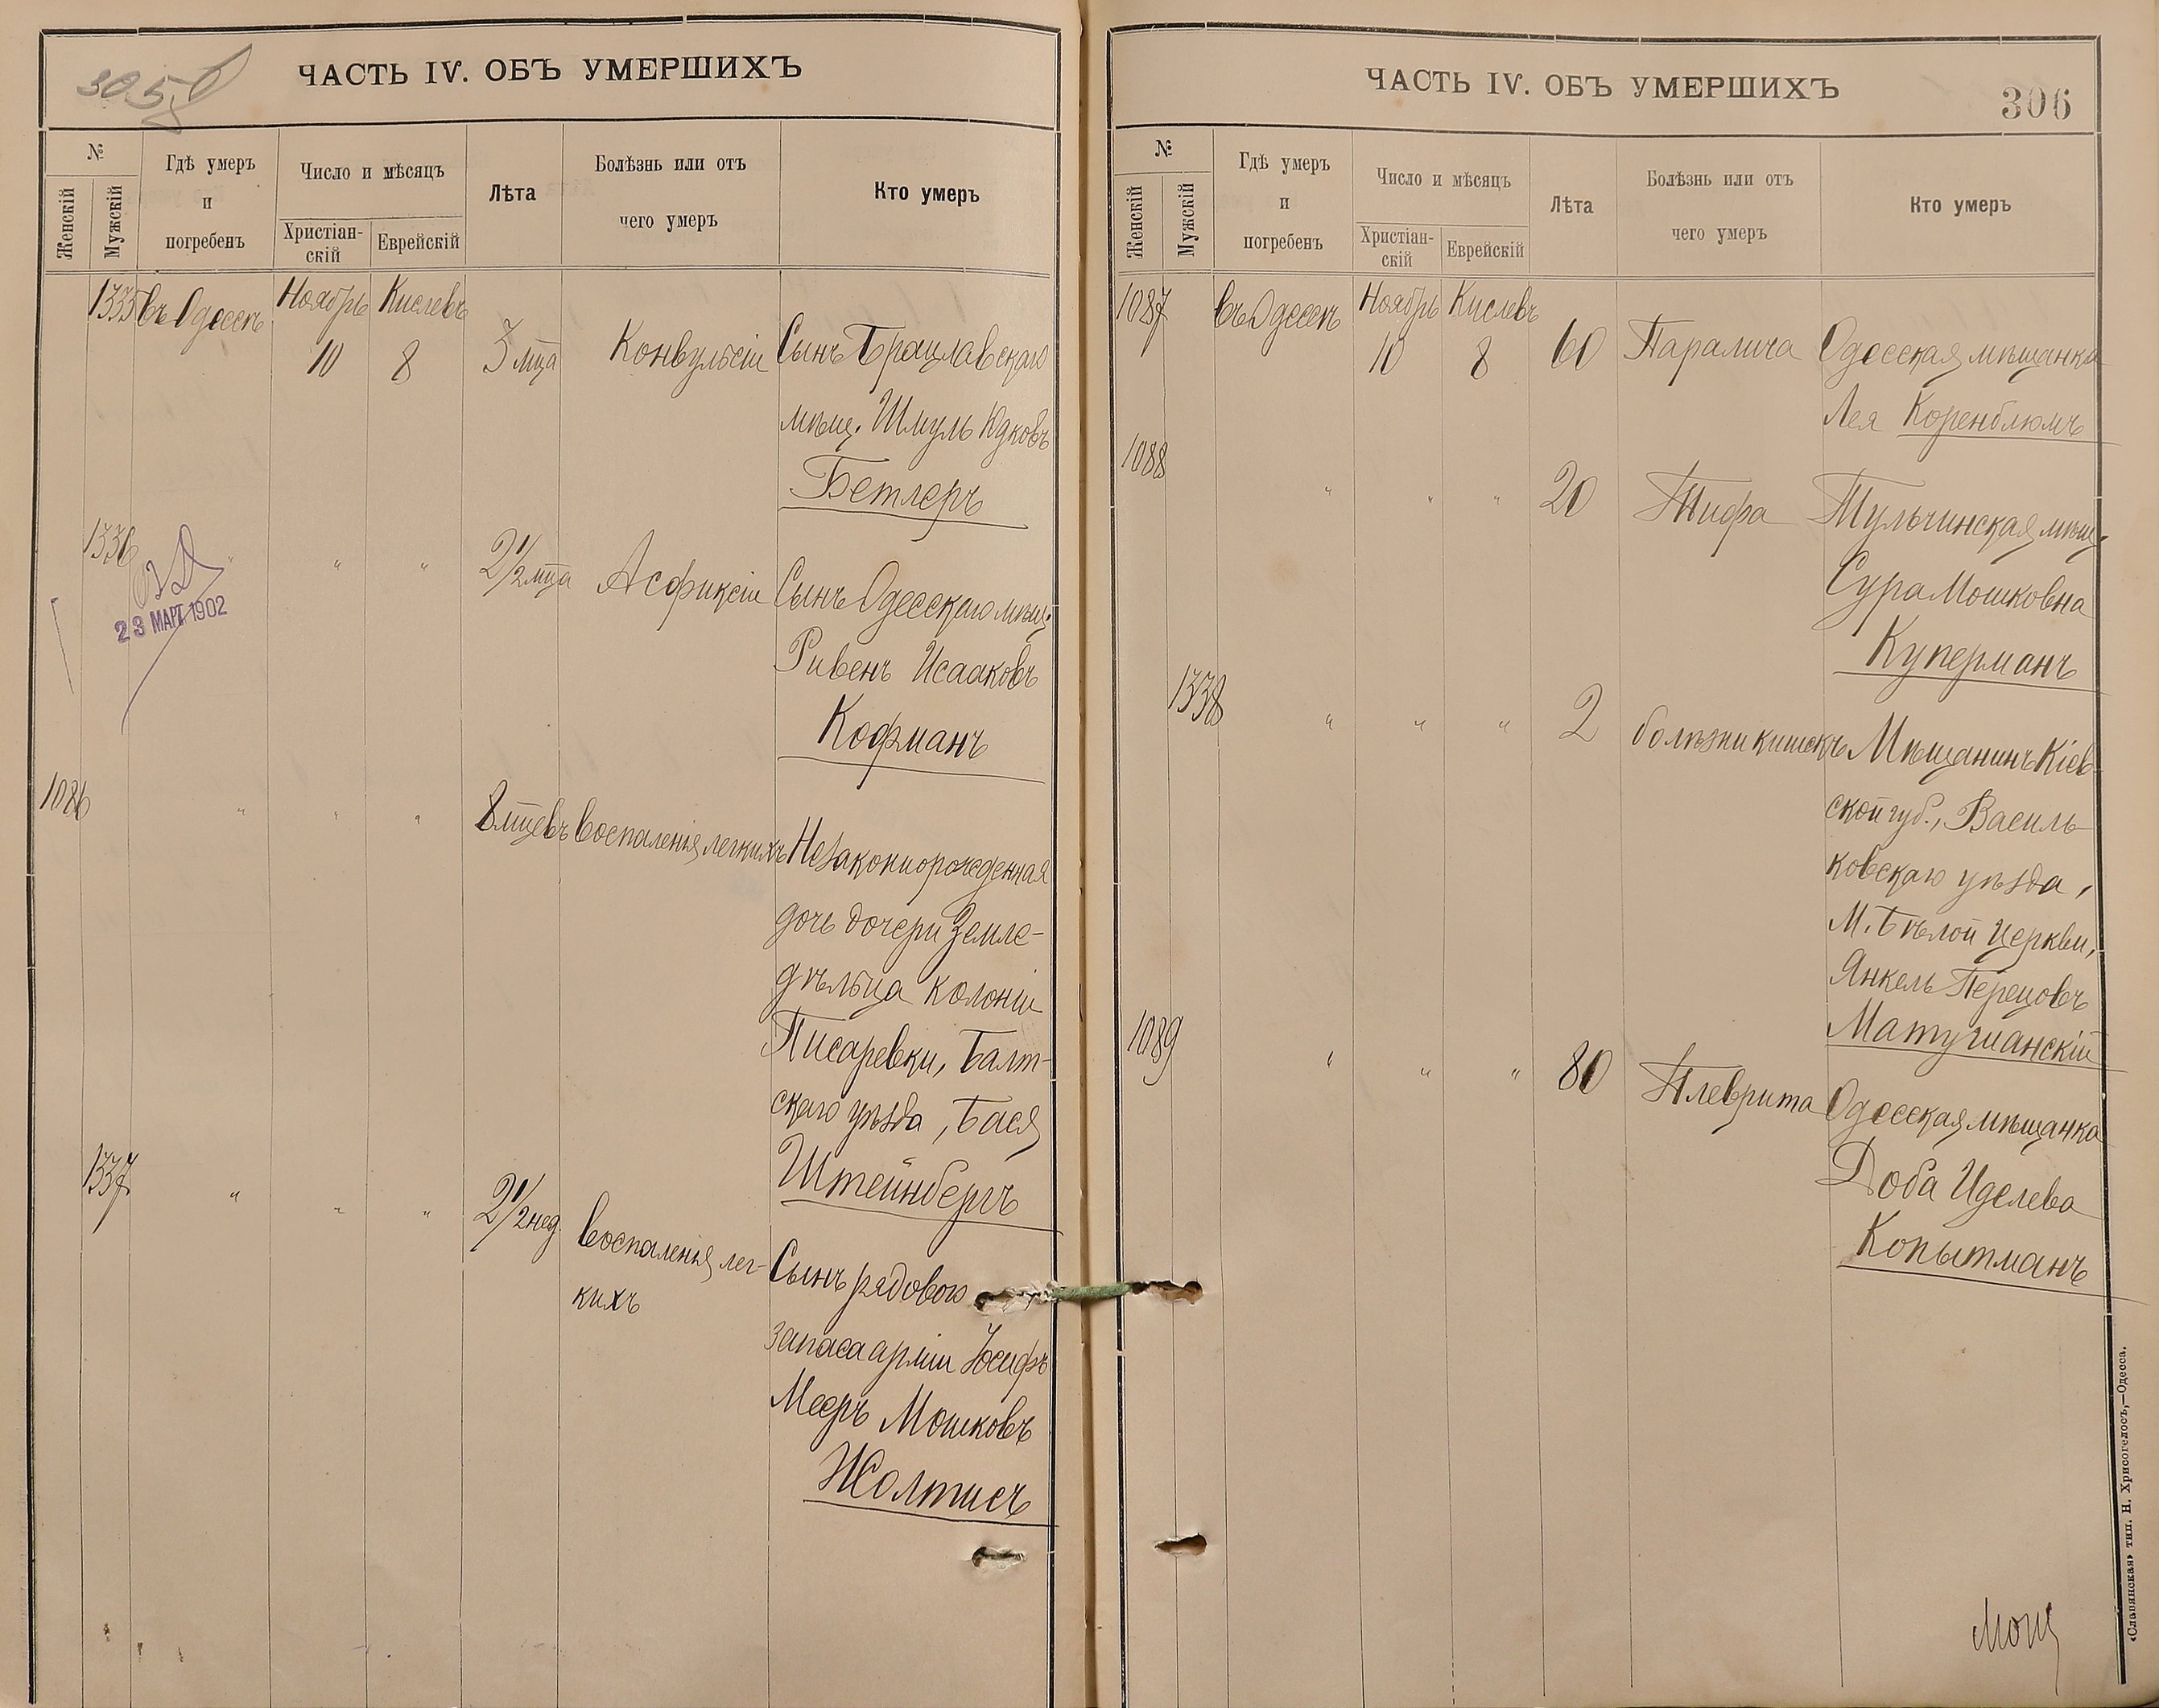 305 б
ЧАСТЬ IV. ОБЪ УМЕРШИХЪ
№
Женскій
Мужскій
Гдѣ умеръ
и
погребенъ
Число и мѣсяцъ
Христіан-
скій
Еврейскій
Лѣта
Болѣзнь или отъ
чего умеръ
Кто умеръ
1335 въ Одессѣ Ноябрь Кислевъ
10 8 3 мца Конвульсіи Сынъ Брацлавскаго
мѣщ. Шмуль Юдковъ
Бетлеръ
1336 " " " 2½ мца Асфиксіи Сынъ Одесскаго мѣщ.
Ривенъ Исааковъ
Кофманъ
23 МАРТ 1902
1086 " " " 8 мцевъ воспаленія легкихъ Незаконнорожденная
дочь дочери Земле-
дѣльца колоніи
Писаревки, Балт-
скаго уѣзда, Бася
Штейнбергъ
1337 " " " 2½ нед. воспаленія лег-
кихъ
Сынъ рядового
запаса арміи Іосифъ
Мееръ Мошковъ
Жолтисъ
ЧАСТЬ IV. ОБЪ УМЕРШИХЪ
306
№
Женскій
Мужскій
Гдѣ умеръ
и
погребенъ
Число и мѣсяцъ
Христіан-
скій
Еврейскій
Лѣта
Болѣзнь или отъ
чего умеръ
Кто умеръ
1087 въ Одессѣ Ноябрь Кислевъ
10 8 60 Паралича Одесская мѣщанка
Лея Коренблюмъ
1088 " " " 20 Тифа Тульчинская мѣщ.
Сура Мошковна
Куперманъ
1338 " " " 2 болѣзни кишекъ Мѣщанинъ Кіев-
ской губ., Василь-
ковскаго уѣзда,
М. Бѣлой Церкви,
Янкель Перецовъ
Матушанскій
1089 " " " 80 Плеврита Одесская мѣщанка
Доба Иделева
Копытманъ
«Славянская» тип. Н. Хрисогелосъ,—Одесса.